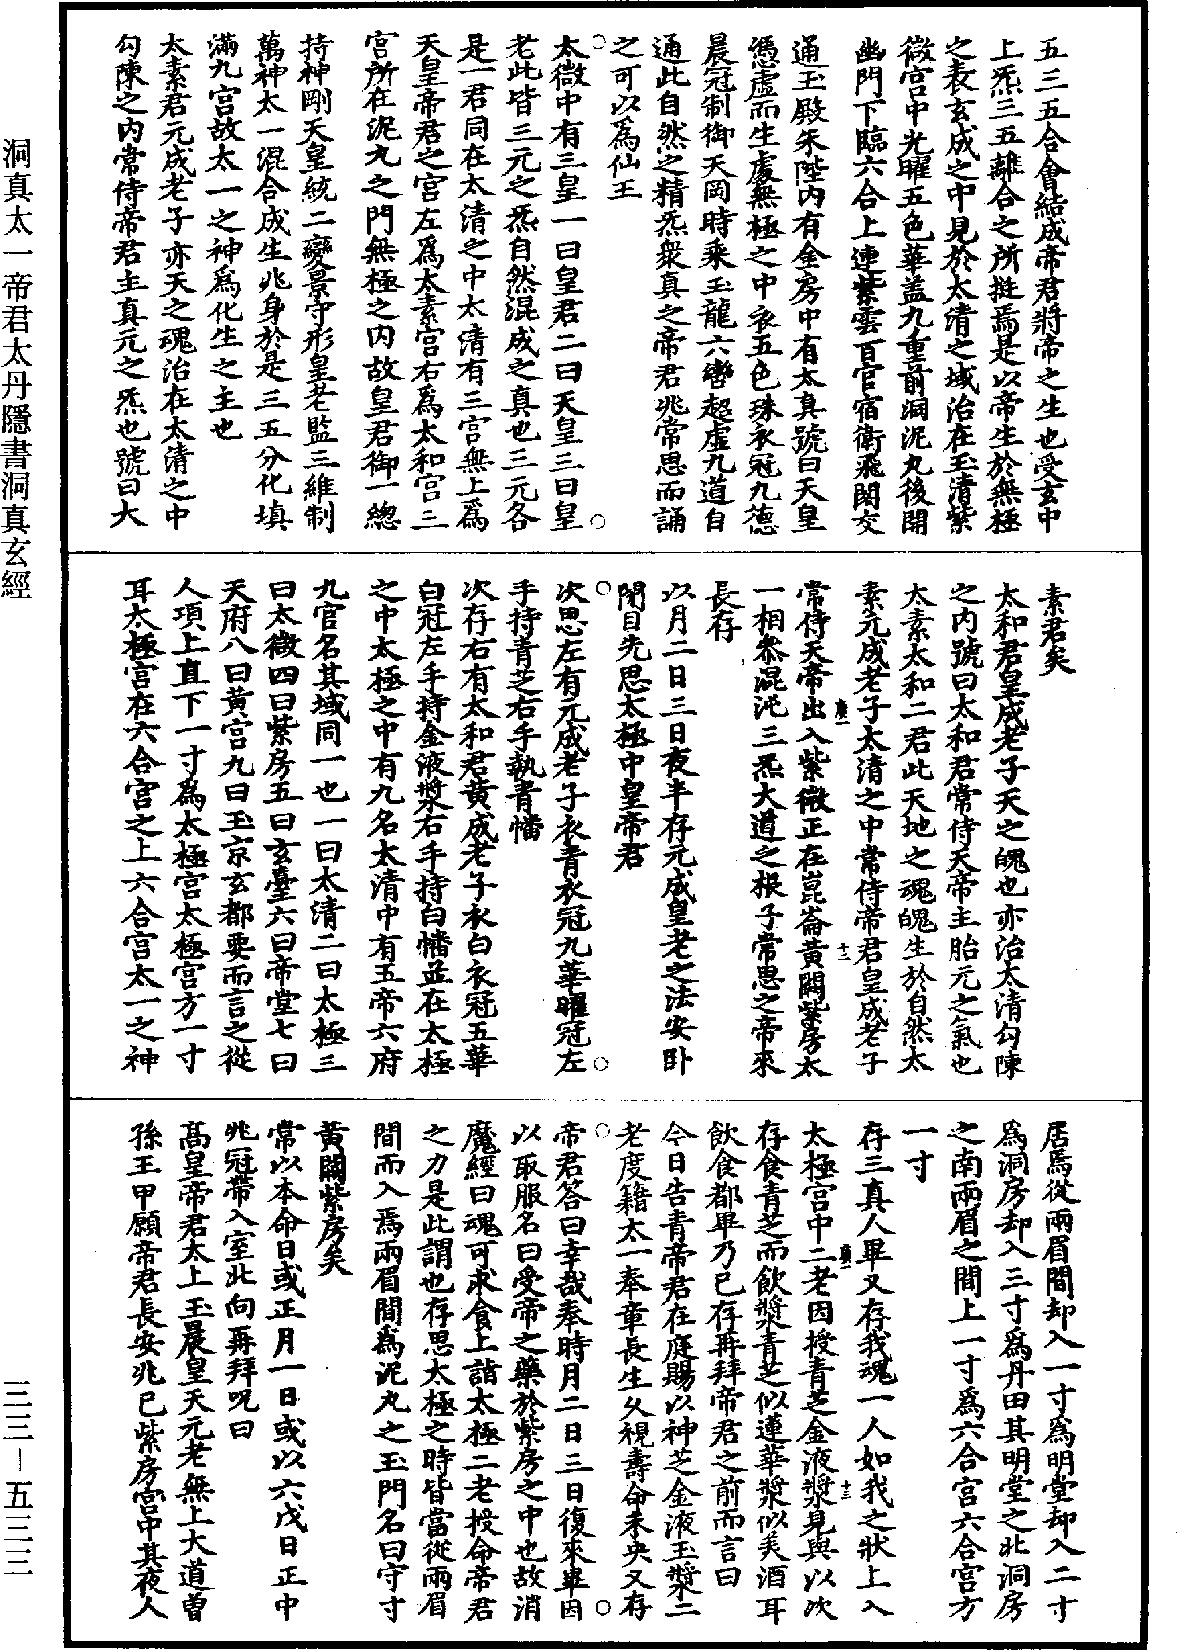 五三五合會結成帝君將帝之生也受玄中
上炁三五離合之所挺焉是以帝生於無極
之表玄成之中見於太清之域治在玉清紫
微宮中光曜五色華蓋九重前洞泥丸後開
幽門下臨六合上連紫雲百官宿衛飛閣交
通玉殿朱陛內有金房中有太真號曰天皇
憑虛而生處無極之中衣五色珠衣冠九德
晨冠制御天岡時乘玉龍六轡超虛九道自
通此自然之精炁衆真之帝君兆常思而誦
之可以為仙王
太微中有三皇一曰皇君二曰天皇三曰皇
老此皆三元之炁自然混成之真也三元各
是一君同在太清之中太清有三宮無上為
天皇帝君之宮左為太素宮右為太和宮三
宮所在泥丸之門無極之內故皇君御一總
持神剛天皇統二變景守形皇老監三維制
萬神太一混合成生兆身於是三五分化填
滿九宮故太一之神為化生之主也
太素君元成老子亦天之魂治在太清之中
勾陳之內常侍帝君主真元之炁也號曰大
素君矣
太和君皇成老子天之魄也亦治太清勾陳
之內號曰太和君常侍天帝主胎元之氣也
太素太和二君此天地之魂魄生於自然太
素元成老子太清之中常侍帝君皇成老子
常侍天帝出入紫微正在崑崙黃闕紫房太
一相參混沌三炁大道之根子常思之帝來
長存
以月二日三日夜半存元成皇老之法安卧
閉目先思太極中皇帝君
次思左有元成老子衣青衣冠九華曜冠左
手持青芝右手執青幡
次存右有太和君黃成老子衣白衣冠五華
白冠左手持金液漿右手持白幡並在太極
之中太極之中有九名太清中有五帝六府
九官名其域同一也一曰太清二曰太極三
曰太微四曰紫房五曰玄臺六曰帝堂七曰
天府八曰黃宮九曰玉京玄都要而言之從
人項上直下一寸為太極宮太極宮方一寸
耳太極宮在六合宮之上六合宮太一之神
居焉從兩眉間却入一寸為明堂却入二寸
為洞房却入三寸為丹田其明堂之北洞房
之南兩眉之間上一寸為六合宮六合宮方
一寸
存三真人畢又存我魂一人如我之狀上入
太極宮中二老因授青芝金液漿見與以次
存食青芝而飲漿青芝似蓮華漿似美酒耳
飲食都畢乃已存再拜帝君之前而言曰
今日告青帝君在庭賜以神芝金液玉漿二
老度籍太一奉章長生久視壽命未央又存
帝君答曰幸哉奉時月二日三日復來畢因
以取服名曰受帝之藥於紫房之中也故消
魔經曰魂可求食上詣太極二老授命帝君
之力是此謂也存思太極之時皆當從兩眉
間而入焉兩眉間為泥丸之玉門名曰守寸
黃闕紫房矣
常以本命日或正月一日或以六戊日正中
兆冠帶入室北向再拜呪曰
高皇帝君太上玉晨皇天元老無上大道曾
孫王甲願帝君長安兆已紫房宮中其夜人
洞真太一帝君太丹隱書洞真玄經
三三—五三三